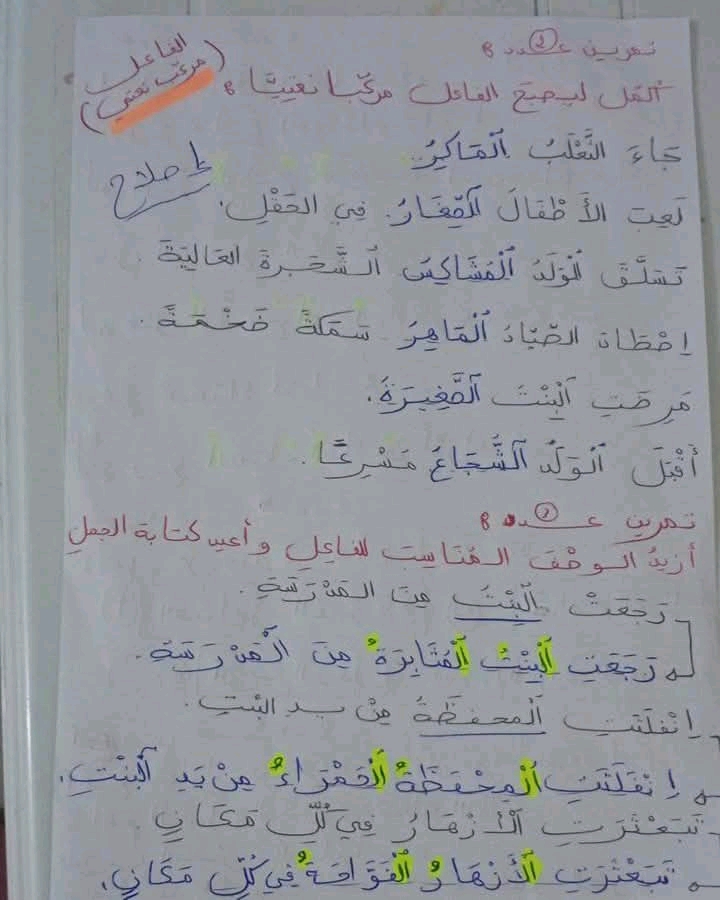 الفاعل
(مركب نعتي)
تمرين عـدد 1 :
أكمل ليصبح الفاعل مركّبا نعتيّا :
إصلاح
جَاءَ الثَّعْلَبُ ٱلْمَاكِرُ.
لَعِبَ الأَطْفَالُ ٱلصِّغَارُ فِي الحَقْلِ.
تَسَلَّقَ ٱلْوَلَدُ ٱلْمُشَاكِسُ ٱلشَّجَرةَ العَالِيَةَ
اِصْطَادَ الصَّيَّادُ ٱلْمَاهِرُ سَمَكَةً ضَخْمَةً.
مَرِضَتِ ٱلْبِنْتُ ٱلصَّغِيرَةُ.
أَقْبَلَ ٱلْوَلَدُ ٱلشُّجَاعُ مُسْرِعًا.
تمرين عـدد 2 :
أزيدُ الوصْفَ المُنَاسِبَ للفاعِلِ وأعيد كتابة الجملِ
رَجَعَتْ ٱلْبِنْتُ مِنَ المَدْرَسَةِ.
رَجَعَتِ ٱلْبِنْتُ ٱلْمُثَابِرَةُ مِنَ ٱلْمَدْرَسَةِ.
اِنْفَلَتَتِ ٱلْمحفظَةُ مِنْ يدِ البنتِ.
اِنْفَلَتَتِ ٱلْمِحْفَظَةُ ٱلْحَمْرَاءُ مِنْ يَدِ ٱلْبِنْتِ.
تَبَعْثَرَتِ ٱلْأزْهَارُ فِي كُلِّ مَكَانٍ.
تَبَعْثَرَتِ ٱلْأَزْهَارُ ٱلْفَوَّاحَةُ فِي كُلِّ مَكَانٍ.